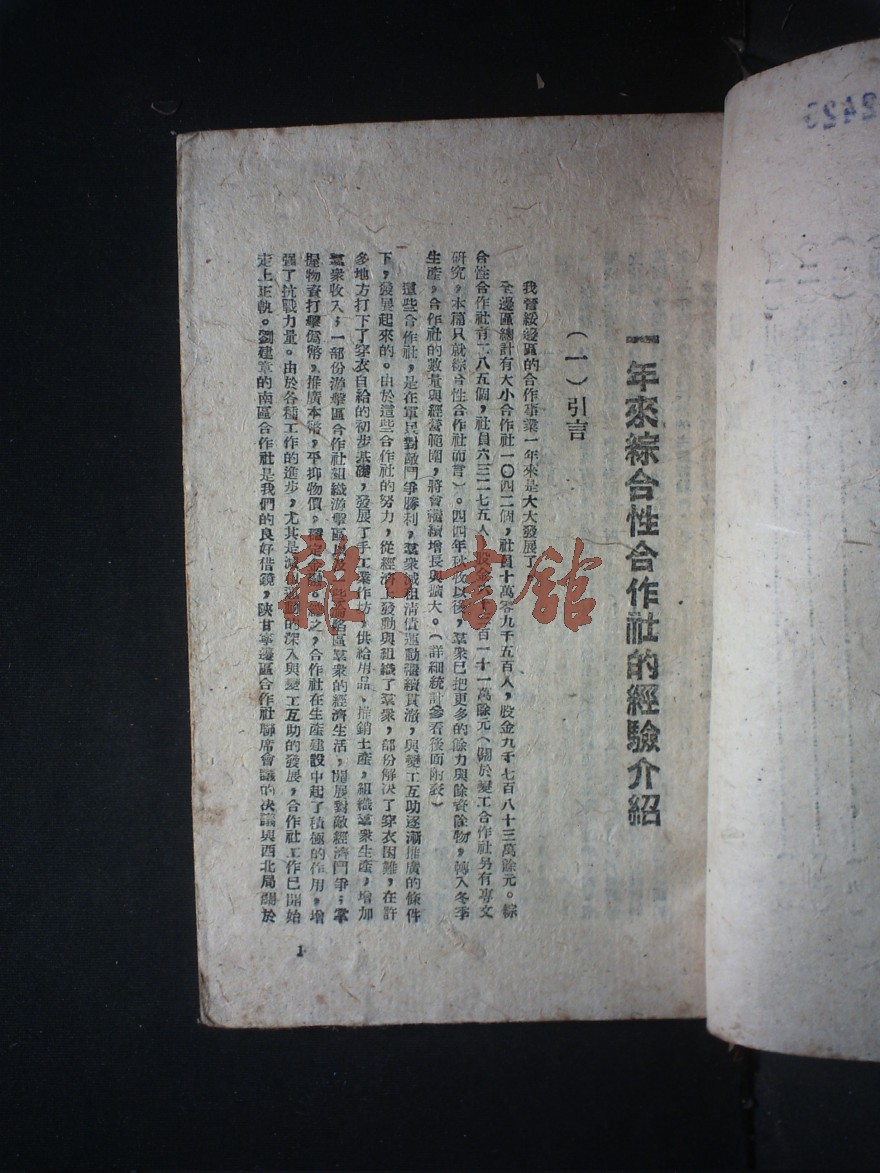 一年來綜合性合作社的經驗介紹
（一）引言
我晉綏邊區的合作事業一年來是大大發展了。
全邊區總計有大小合作社一〇四二個，社員十萬零九千五百人，股金九千七百八十三萬餘元。綜
合性合作社有二八五個，社員六三二七五人，股金六千三百一十一萬餘元（關於變工合作社另有專文
研究，本篇只就綜合性合作社而言）。四四年秋收以後，羣衆已把更多的餘力與餘資餘物，轉入冬季
生產，合作社的數量與經營範圍，將會繼續增長與擴大。（詳細統計參看後面附表）
這些合作社，是在軍民對敵鬥爭勝利，羣衆減租清債運動繼續貫澈，與變工互助逐漸推廣的條件
下，發展起來的。由於這些合作社的努力，從經濟上發動與組織了羣衆，部份解決了穿衣困難，在許
多地方打下了穿衣自給的初步基礎，發展了手工業作坊，供給用品，推銷土產，組織羣衆生產，增加
羣衆收入；一部份游擊區合作社組織游擊區以及一些淪陷區羣衆的經濟生活，開展對敵經濟鬥爭；掌
握物資打擊僞幣，推廣本幣，平抑物價，穩定金融。總之，合作社在生產建設中起了積極的作用，增
强了抗戰力量。由於各種工作的進步，尤其是減租運動的深入與變工互助的發展，合作社工作已開始
走上正軌。劉建章的南區合作社是我們的良好借鏡，陝甘寧邊區合作社聯席會議的決議與西北局關於
1
雜·書館
2423